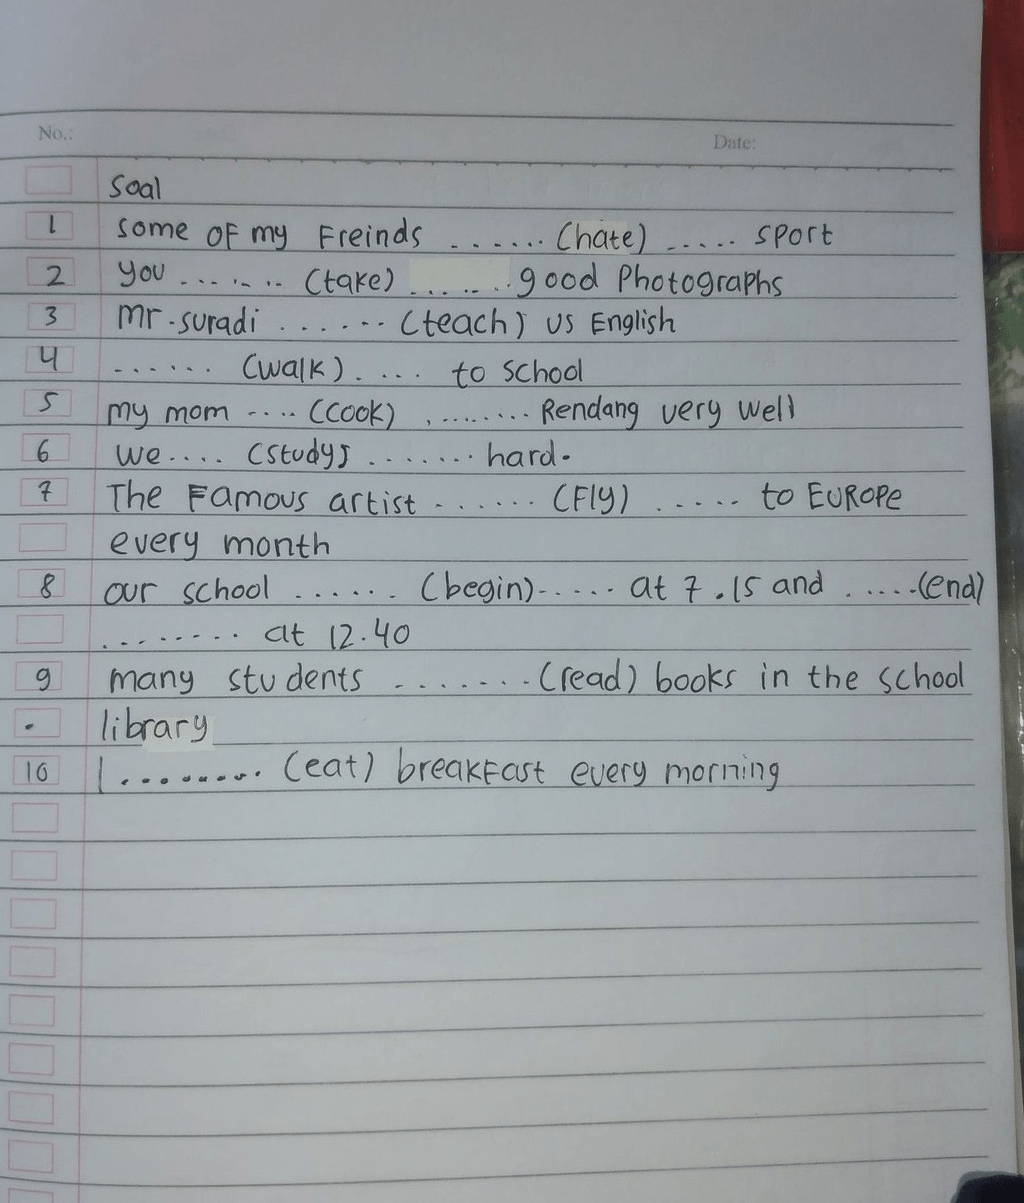 No.:
Date:
Soal
1 some of my Freinds ....... (hate) ..... sport
2 you ....... (take) ....... good Photographs
3 mr.suradi ...... (teach) us English
4 ...... (walk) .... to school
5 my mom .... (cook) ......... Rendang very well
6 we .... (study) ........ hard.
7 The Famous artist ....... (Fly) ..... to EUROPE
every month
8 our school ...... (begin)...... at 7.15 and .....(end)
........ at 12.40
9 many students ....... (read) books in the school
. library
10 I ......... (eat) breakFast every morning